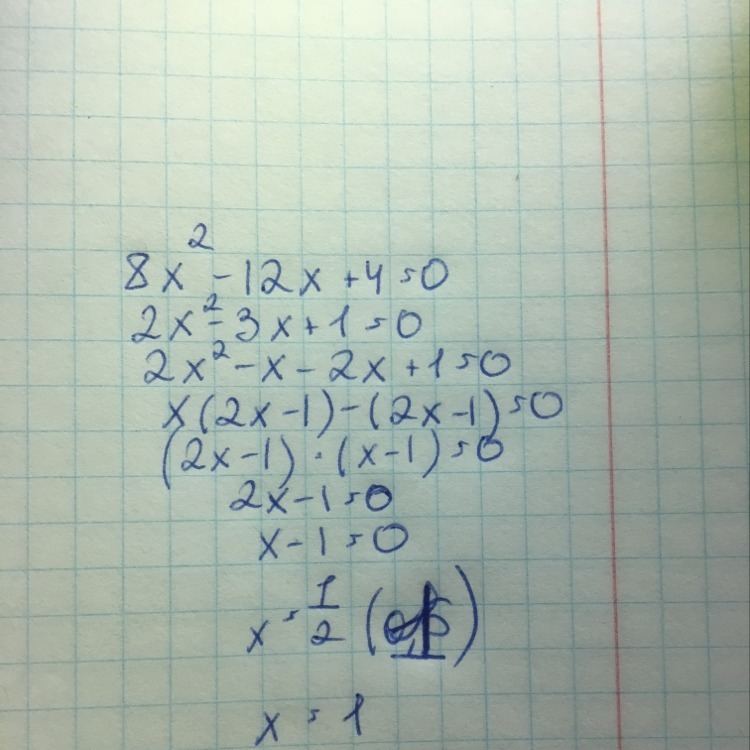 8x² - 12x + 4 = 0
2x² - 3x + 1 = 0
2x² - x - 2x + 1 = 0
x(2x - 1) - (2x - 1) = 0
(2x - 1) · (x - 1) = 0
2x - 1 = 0
x - 1 = 0
x = 1/2
x = 1